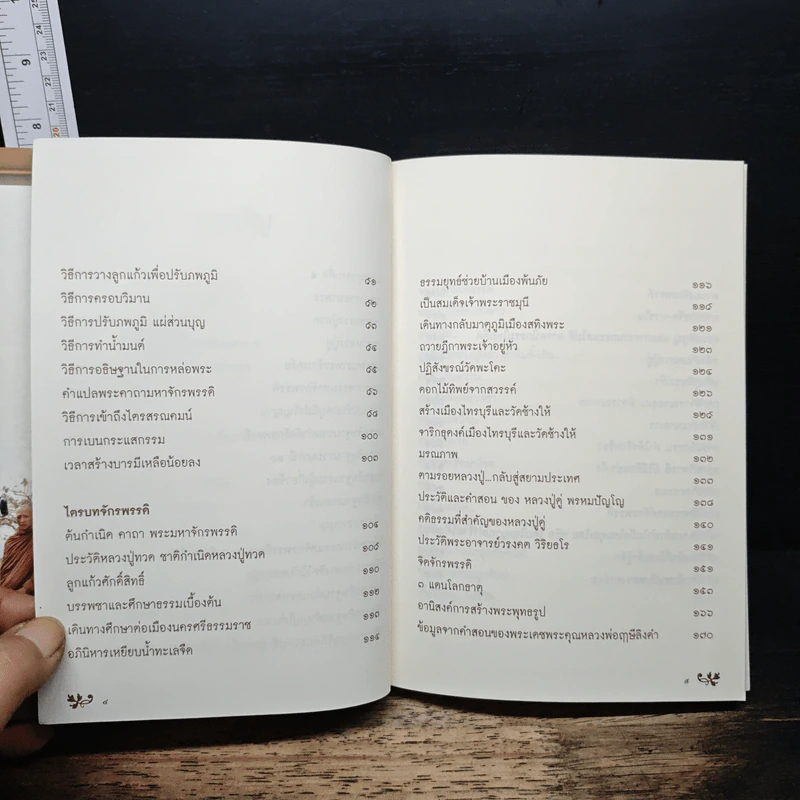 วิธีการวางลูกแก้วเพื่อปรับภพภูมิ ๙๑
วิธีการครอบวิมาน ๙๒
วิธีการปรับภพภูมิ แผ่ส่วนบุญ ๙๓
วิธีการทำน้ำมนต์ ๙๔
วิธีการอธิษฐานในการหล่อพระ ๙๕
คำแปลพระคาถามหาจักรพรรดิ ๙๖
วิธีการเข้าถึงไตรสรณคมน์ ๙๘
การเบนกระแสกรรม ๑๐๐
เวลาสร้างบารมีเหลือน้อยลง ๑๐๓
ไตรบทจักรพรรดิ
ต้นกำเนิด คาถา พระมหาจักรพรรดิ ๑๐๔
ประวัติหลวงปู่ทวด ชาติกำเนิดหลวงปู่ทวด ๑๐๙
ลูกแก้วศักดิ์สิทธิ์ ๑๑๐
บรรพชาและศึกษาธรรมเบื้องต้น ๑๑๒
เดินทางศึกษาต่อเมืองนครศรีธรรมราช ๑๑๓
อภินิหารเหยียบน้ำทะเลจืด ๑๑๔
๘
ธรรมยุทธ์ช่วยบ้านเมืองพ้นภัย ๑๑๖
เป็นสมเด็จเจ้าพระราชมุนี ๑๑๙
เดินทางกลับมาตุภูมิเมืองสทิงพระ ๑๒๑
ถวายฎีกาพระเจ้าอยู่หัว ๑๒๓
ปฏิสังขรณ์วัดพะโคะ ๑๒๔
ดอกไม้ทิพย์จากสวรรค์ ๑๒๖
สร้างเมืองไทรบุรีและวัดช้างให้ ๑๒๙
จาริกธุดงค์เมืองไทรบุรีและวัดช้างให้ ๑๓๑
มรณภาพ ๑๓๒
ตามรอยหลวงปู่...กลับสู่สยามประเทศ ๑๓๓
ประวัติและคำสอน ของ หลวงปู่ดู่ พรหมปัญโญ ๑๓๘
คติธรรมที่สำคัญของหลวงปู่ดู่ ๑๔๐
ประวัติพระอาจารย์วรงคต วิริยธโร ๑๔๑
จิตจักรพรรดิ ๑๕๑
๓ แดนโลกธาตุ ๑๕๓
อานิสงค์การสร้างพระพุทธรูป ๑๖๖
ข้อมูลจากคำสอนของพระเดชพระคุณหลวงพ่อฤๅษีลิงดำ ๑๗๐
๙